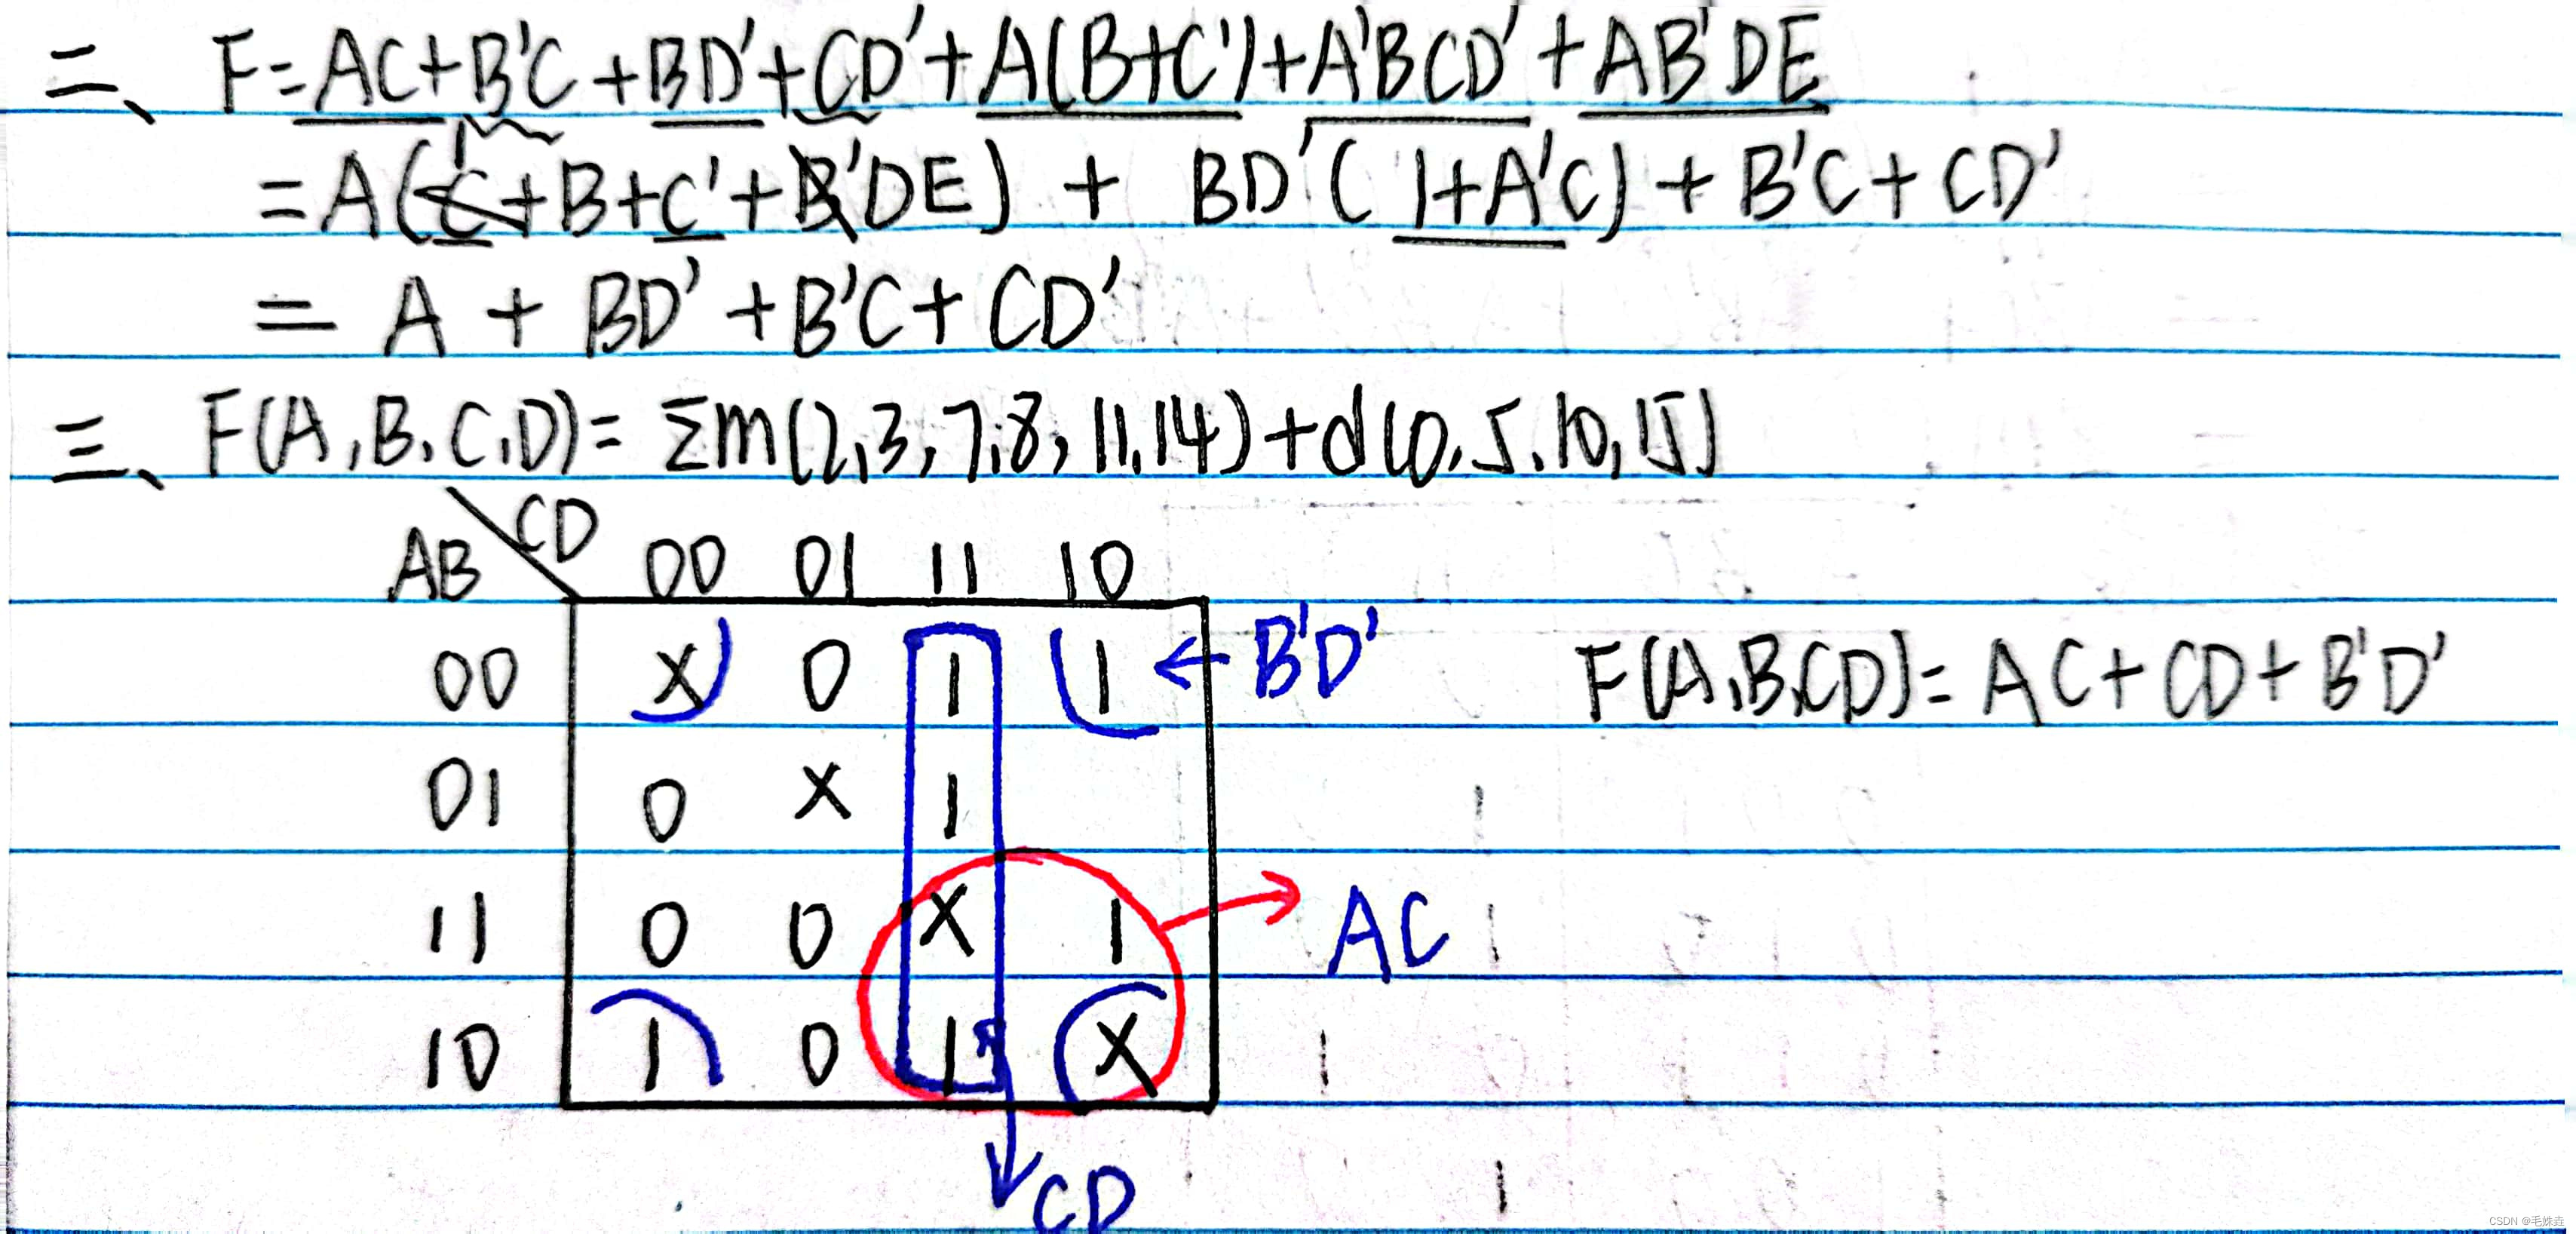 二、 F=AC+B'C+BD'+CD'+A(B+C')+A'BCD'+AB'DE
=A(C+B+C'+B'DE) + BD'(1+A'C)+B'C+CD'
= A + BD'+B'C+CD'
三、 F(A,B,C,D)= Σm(2,3,7,8,11,14)+d(0,5,10,15)
AB CD 00 01 11 10
00 X 0 1 1 ← B'D' F(A,B,CD)= AC+CD+B'D'
01 0 X 1
11 0 0 X 1 AC
10 1 0 1 X
CD
CSDN @毛姝垚